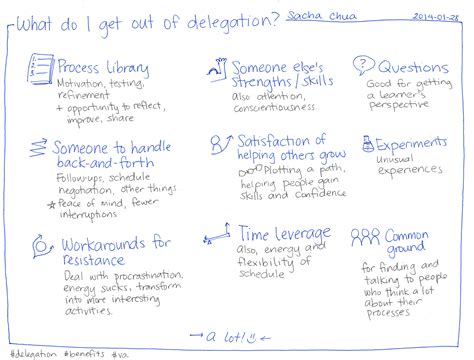 What do I get out of delegation? Sacha Chua 2014-01-28
Process Library
Motivation, testing,
refinement
+ opportunity to reflect,
improve, share
Someone else's
strengths/skills
also attention,
conscientiousness.
Questions
Good for getting
a learner's
perspective
Someone to handle
back-and-forth
Followups, schedule
negotiation, other things
Peace of mind, fewer
interruptions
Satisfaction of
helping others grow
Plotting a path,
helping people gain
skills and confidence
Experiments
Unusual
experiences
Workarounds for
resistance
Deal with procrastination,
energy sucks, transform
into more interesting
activities.
Time leverage
also, energy and
flexibility of
schedule
Common
ground
for finding and
talking to people
who think a lot
about their
processes
→ a lot! ☺ ←
#delegation #benefits #va